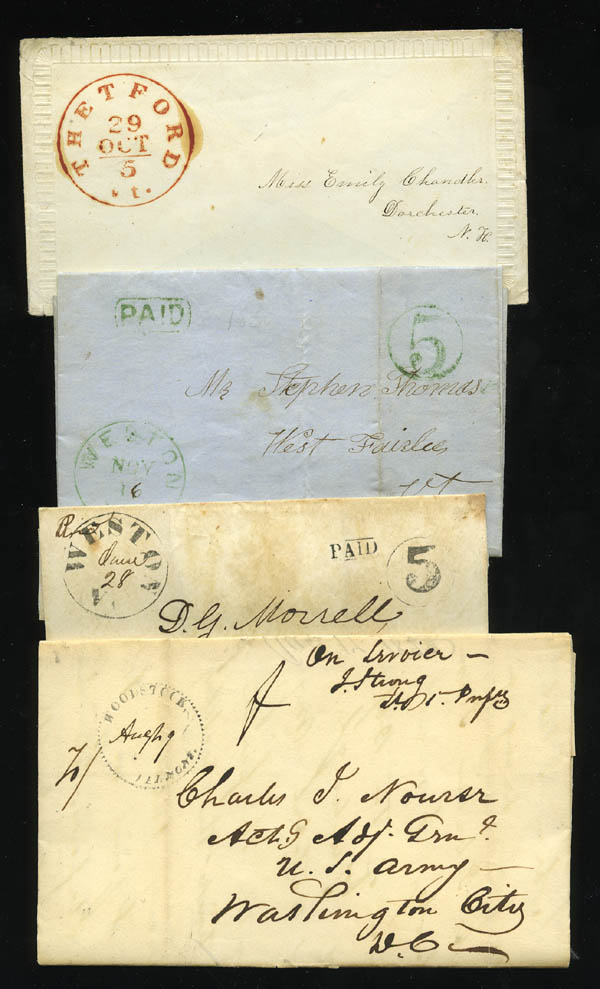 THETFORD
29
OCT
5
Vt.
Miss Emily Chandler.
Dorchester.
N. H.
PAID
5
Mr Stephen Thomas
West Fairlee
Vt
WESTON
NOV
16
WESTON
June
28
PAID
5
D. G. Morrell
On Servoier —
J. Strong
WOODSTOCK
VERMONT.
Charles J. Nourse
Actg Adj. Genl.
U. S. Army —
Washington City
D. C.